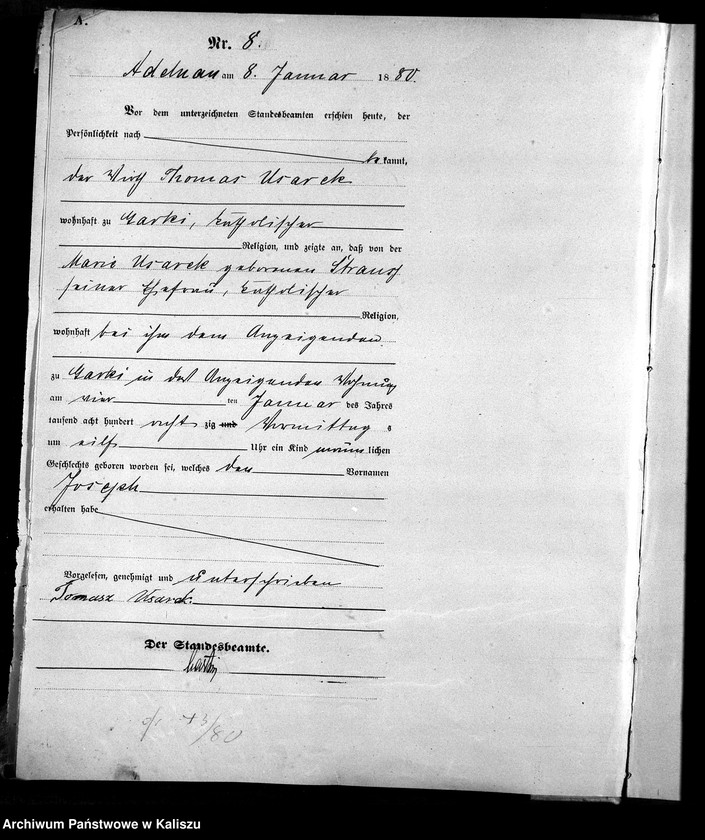 A.
Nr. 8.
Adelnau am 8. Januar 1880.
Vor dem unterzeichneten Standesbeamten erschien heute, der
Persönlichkeit nach
bekannt,
der Wirth Thomas Usarek
wohnhaft zu Garki, katholischer
Religion, und zeigte an, daß von der
Marie Usarek geborenen
seiner Ehefrau, katholischer
Religion,
wohnhaft bei ihm dem Anzeigenden
zu Garki in des Anzeigenden Wohnung
am vier ten Januar des Jahres
tausend acht hundert acht zig und Vormittag s
um eilf Uhr ein Kind männlichen
Geschlechts geboren worden sei, welches den Vornamen
Joseph
erhalten habe
Vorgelesen, genehmigt und unterschrieben
Tomasz Usarek
Der Standesbeamte.
Archiwum Państwowe w Kaliszu